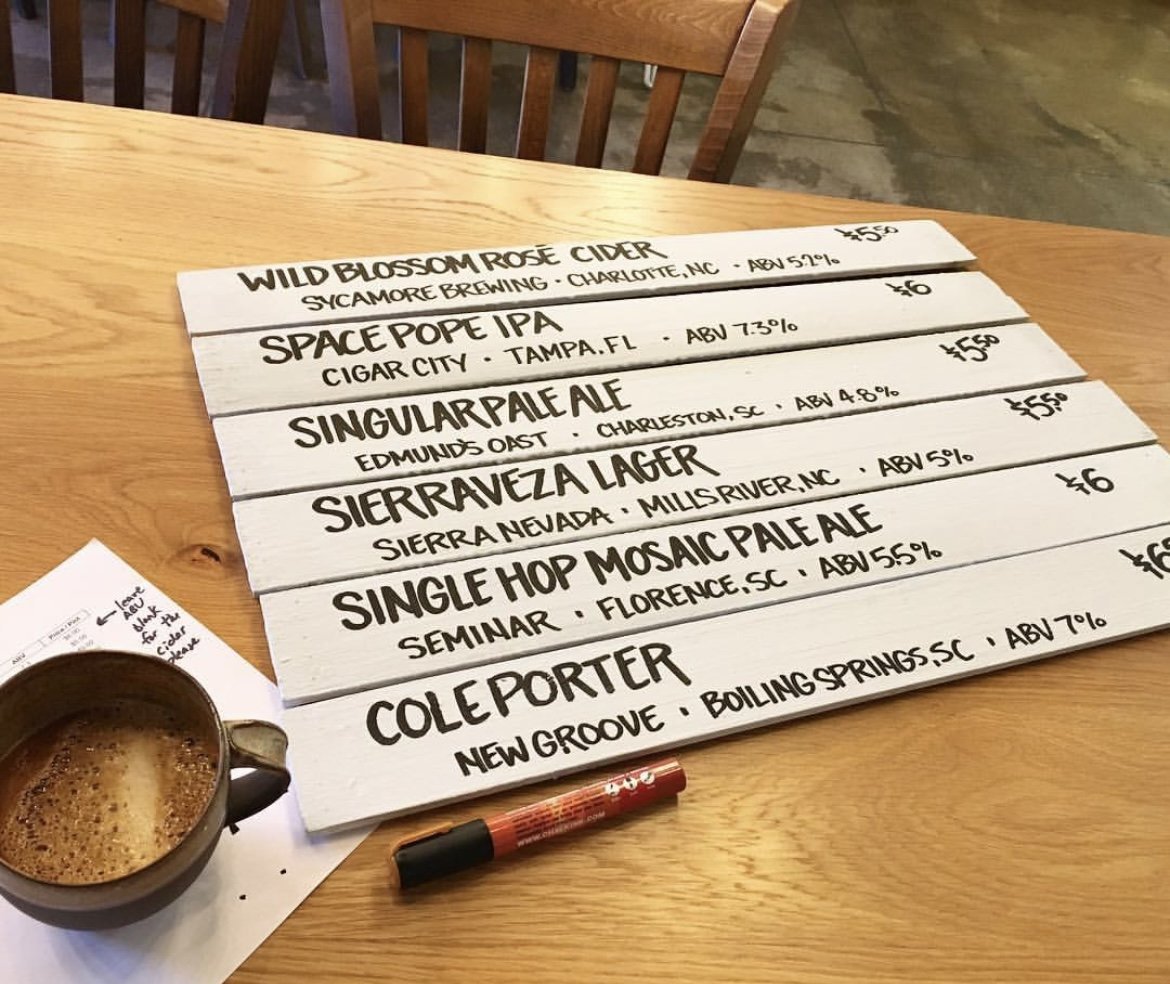 WILD BLOSSOM ROSÉ CIDER $5.50
SYCAMORE BREWING · CHARLOTTE, NC · ABV 5.2%
SPACE POPE IPA $6
CIGAR CITY · TAMPA, FL · ABV 7.3%
SINGULAR PALE ALE $5.50
EDMUND'S OAST · CHARLESTON, SC · ABV 4.8%
SIERRAVEZA LAGER $5.50
SIERRA NEVADA · MILLS RIVER, NC · ABV 5%
SINGLE HOP MOSAIC PALE ALE $6
SEMINAR · FLORENCE, SC · ABV 5.5%
COLE PORTER
NEW GROOVE · BOILING SPRINGS, SC · ABV 7%
← leave
ABV
blank
for the
cider
please
ABV Price/Pint